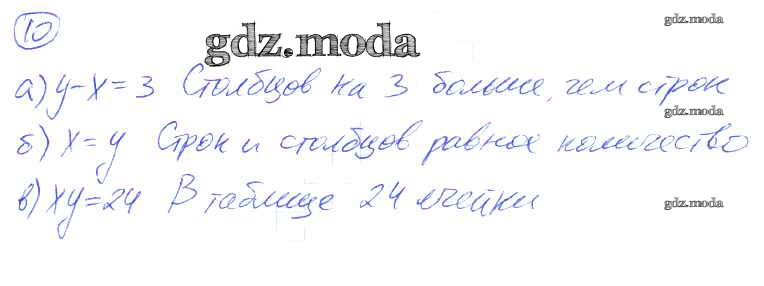 10
gdz.moda
gdz.moda
а) y-x=3 Столбцов на 3 больше, чем строк
gdz.moda
б) x=y Строк и столбцов равное количество
в) xy=24 В таблице 24 ячейки
gdz.moda